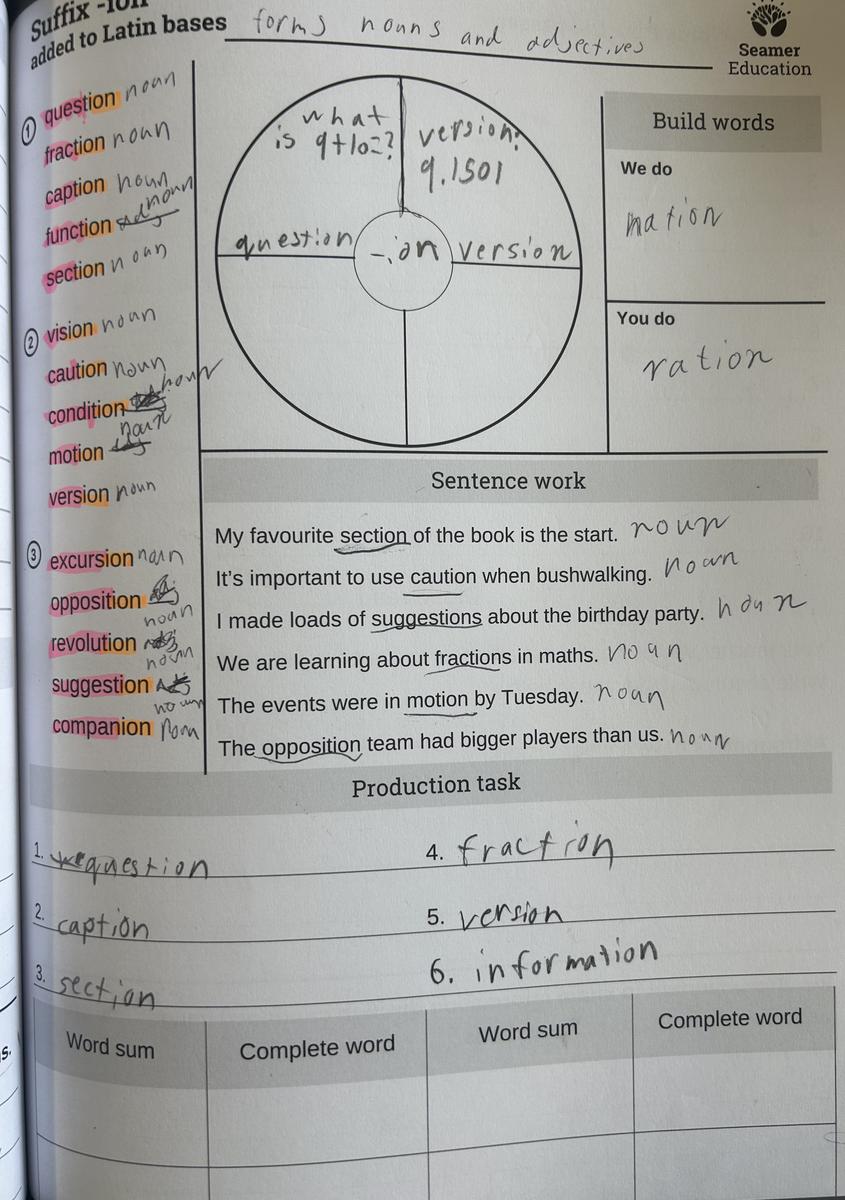 Suffix -ion
added to Latin bases forms nouns and adjectives
Seamer
Education
1 question noun
fraction noun
caption noun
function noun
section noun
2 vision noun
caution noun
condition noun
motion noun
version noun
3 excursion noun
opposition noun
revolution noun
suggestion noun
companion noun
what
is 9+10=?
version:
9.1501
question
-ion
version
Build words
We do
nation
You do
ration
Sentence work
My favourite section of the book is the start. noun
It's important to use caution when bushwalking. noun
I made loads of suggestions about the birthday party. noun
We are learning about fractions in maths. noun
The events were in motion by Tuesday. noun
The opposition team had bigger players than us. noun
Production task
1. question
2. caption
3. section
4. fraction
5. version
6. information
Word sum Complete word Word sum Complete word